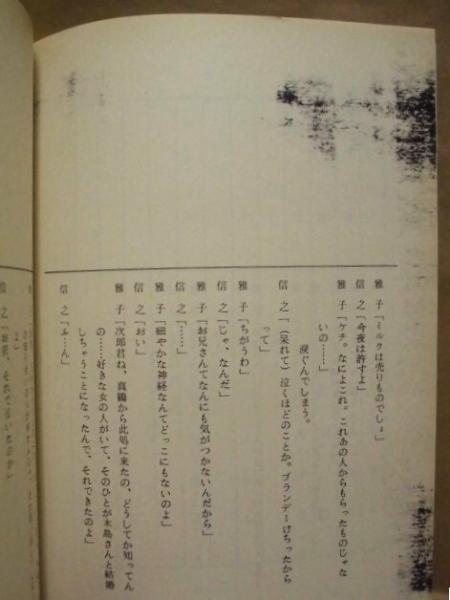 雅子「ミルクは売りものでしょ」
信之「今夜は許すよ」
雅子「ケチ。なによこれ。これあの人からもらったものじゃな
いの……」
涙ぐんでしまう。
信之「(呆れて)泣くほどのことか。ブランデーけちったから
って」
雅子「ちがうわ」
信之「じゃ、なんだ」
雅子「お兄さんてなんにも気がつかないんだから」
信之「……」
雅子「細やかな神経なんてどっこにもないのよ」
信之「おい」
雅子「次郎君ね、真鶴から此処に来たの、どうしてか知ってん
の……好きな女の人がいて、そのひとが木島さんと結婚
しちゃうことになったんで、それできたのよ」
信之「ふーん」